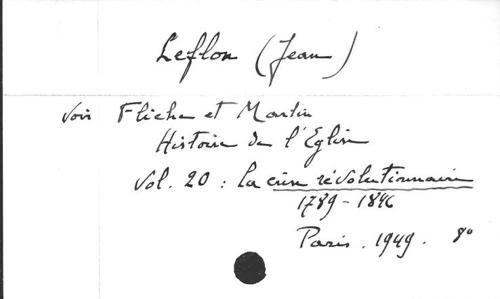 Leflon (Jean)
Voir Fliche et Martin
Histoire de l'Eglise
Vol. 20 : La crise révolutionnaire
1789-1846
Paris. 1949. 8°